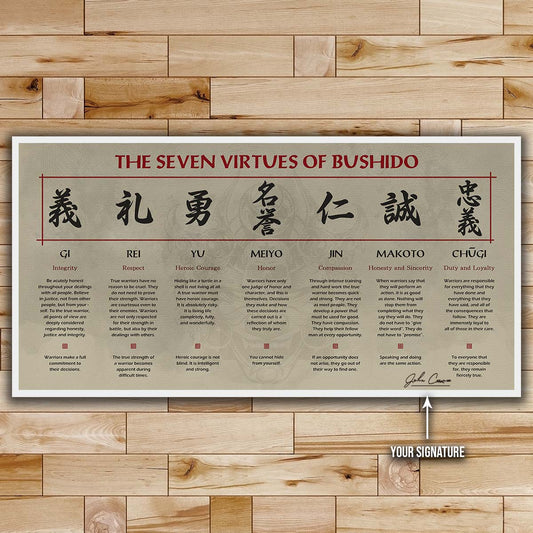 THE SEVEN VIRTUES OF BUSHIDO
義 礼 勇 名誉 仁 誠 忠義
GI
Integrity
Be acutely honest
throughout your dealings
with all people. Believe
in justice, not from other
people, but from your-
self. To the true warrior,
all points of view are
deeply considered
regarding honesty,
justice and integrity.
Warriors make a full
commitment to
their decisions.
REI
Respect
True warriors have no
reason to be cruel. They
do not need to prove
their strength. Warriors
are courteous even to
their enemies. Warriors
are not only respected
for their strength in
battle, but also by their
dealings with others.
The true strength of
a warrior becomes
apparent during
difficult times.
YU
Heroic Courage
Hiding like a turtle in a
shell is not living at all.
A true warrior must
have heroic courage.
It is absolutely risky.
It is living life
completely, fully,
and wonderfully.
Heroic courage is not
blind. It is intelligent
and strong.
MEIYO
Honor
Warriors have only
one judge of honor and
character, and this is
themselves. Decisions
they make and how
these decisions are
carried out is a
reflection of whom
they truly are.
You cannot hide
from yourself.
JIN
Compassion
Through intense training
and hard work the true
warrior becomes quick
and strong. They are not
as most people. They
develop a power that
must be used for good.
They have compassion.
They help their fellow
man at every opportunity.
If an opportunity does
not arise, they go out of
their way to find one.
MAKOTO
Honesty and Sincerity
When warriors say that
they will perform an
action, it is as good
as done. Nothing will
stop them from
completing what they
say they will do. They
do not have to "give
their word". They do
not have to "promise".
Speaking and doing
are the same action.
CHŪGI
Duty and Loyalty
Warriors are responsible
for everything that they
have done and
everything that they
have said, and all of
the consequences that
follow. They are
immensely loyal to
all of those in their care.
To everyone that
they are responsible
for, they remain
fiercely true.
YOUR SIGNATURE